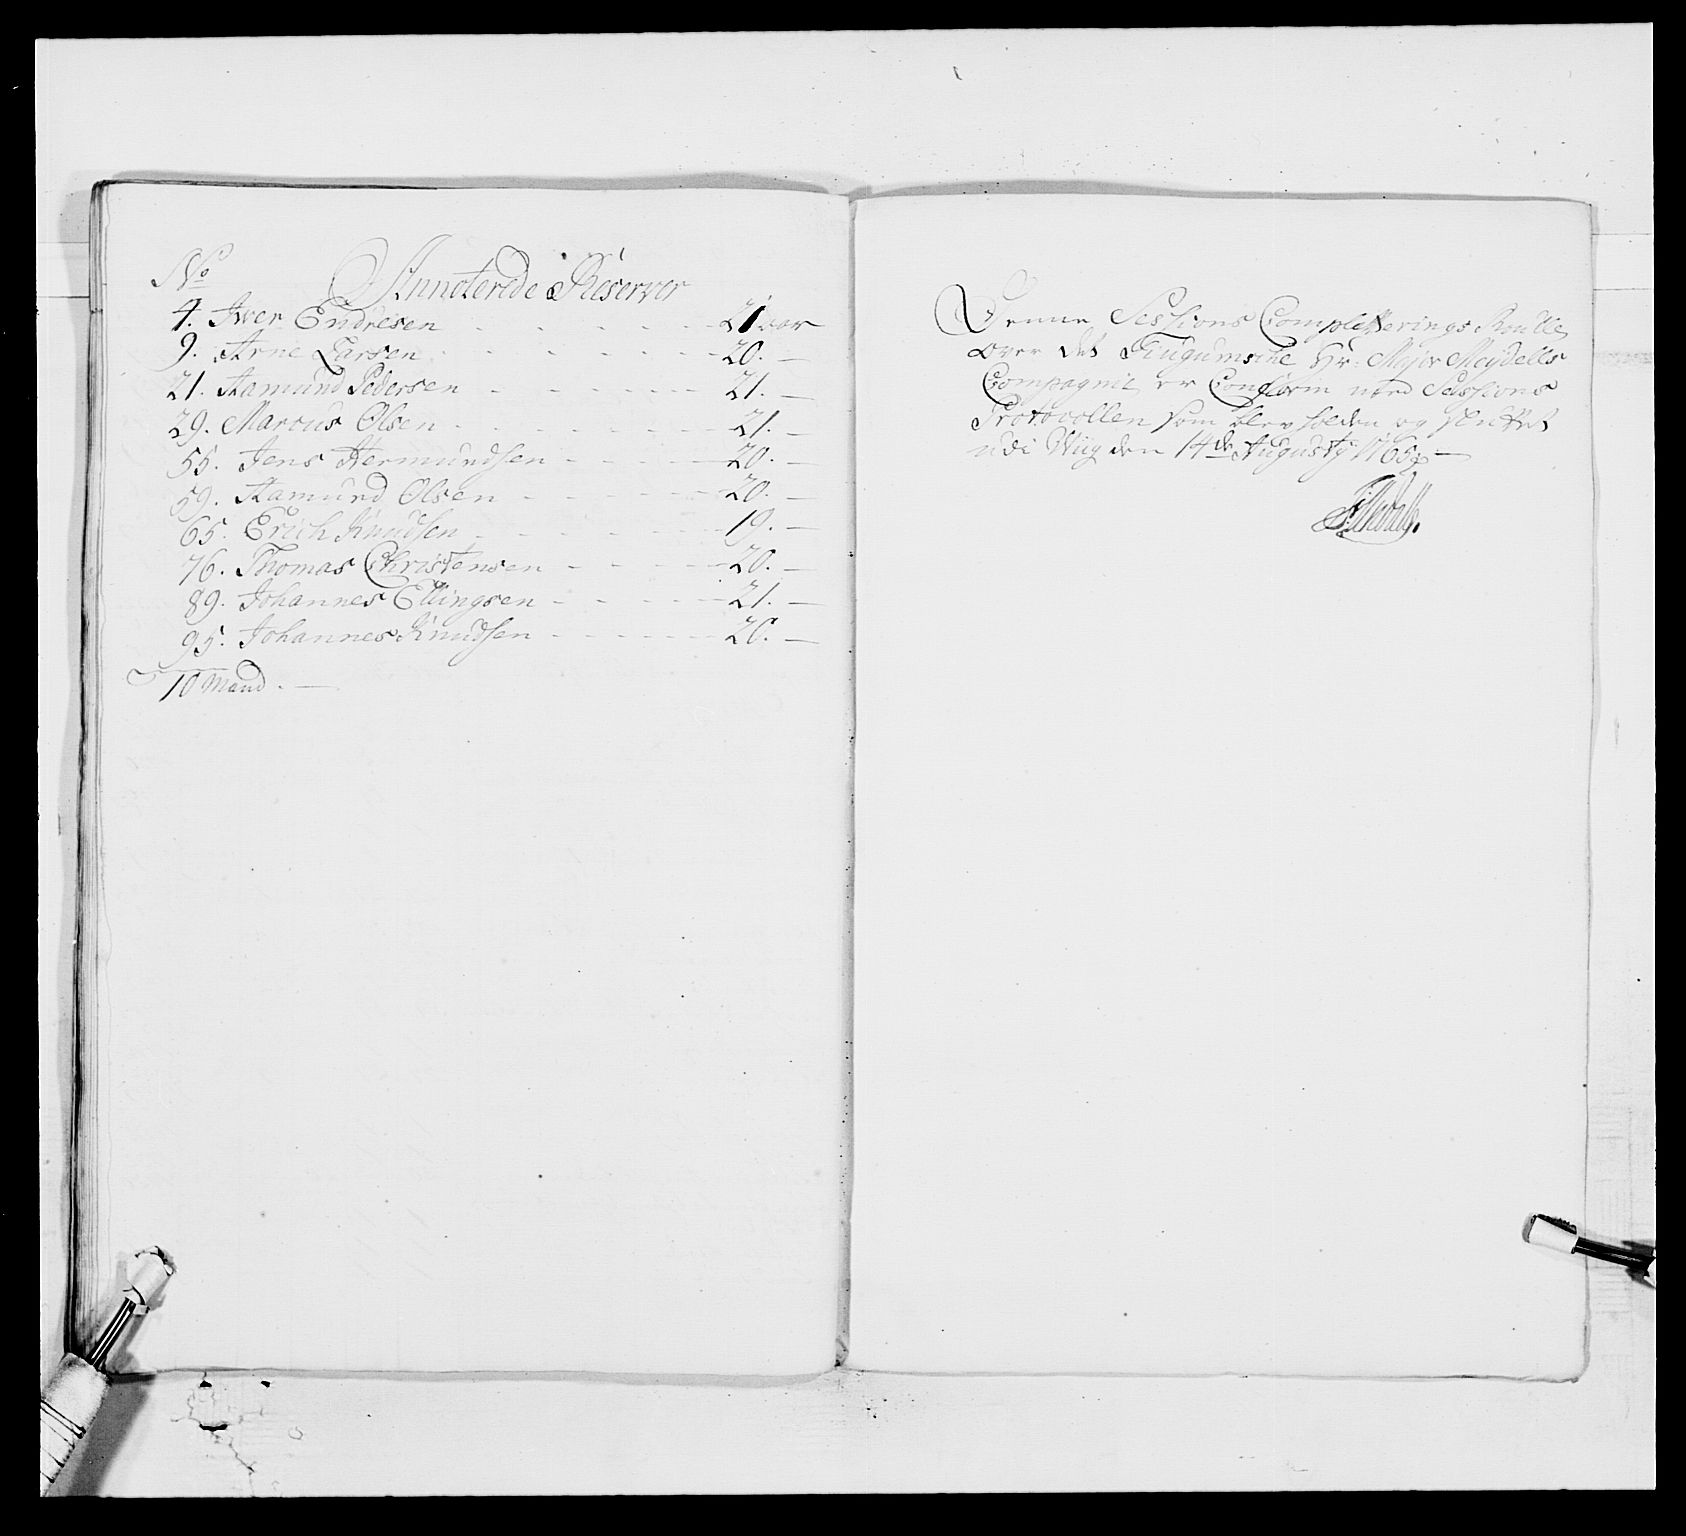 No
Annoterede Reserver
4. Iver Endresen - - - - - - 21 aar
9. Arne Larsen - - - - - - 20. —
21. Aamund Pedersen - - - - - - 21. —
29. Marcus Olsen - - - - - - 21. —
55. Jens Hermundsen - - - - - 20. —
59. Aamund Olsen - - - - - - 20. —
65. Erich Knudsen - - - - - - 19. —
76. Thomas Christensen - - - - - 20. —
89. Johannes Ellingsen - - - - - 21. —
95. Johannes Knudsen - - - - - - 20. —
10 Mand. —
Denne Sessions Completterings Roulle
over det Hr: Major Meydells
Compagnie er Conform med Sessions
Protocollen som blev holden og sluttet
udi Wiig den 14de Augusty 1765 —